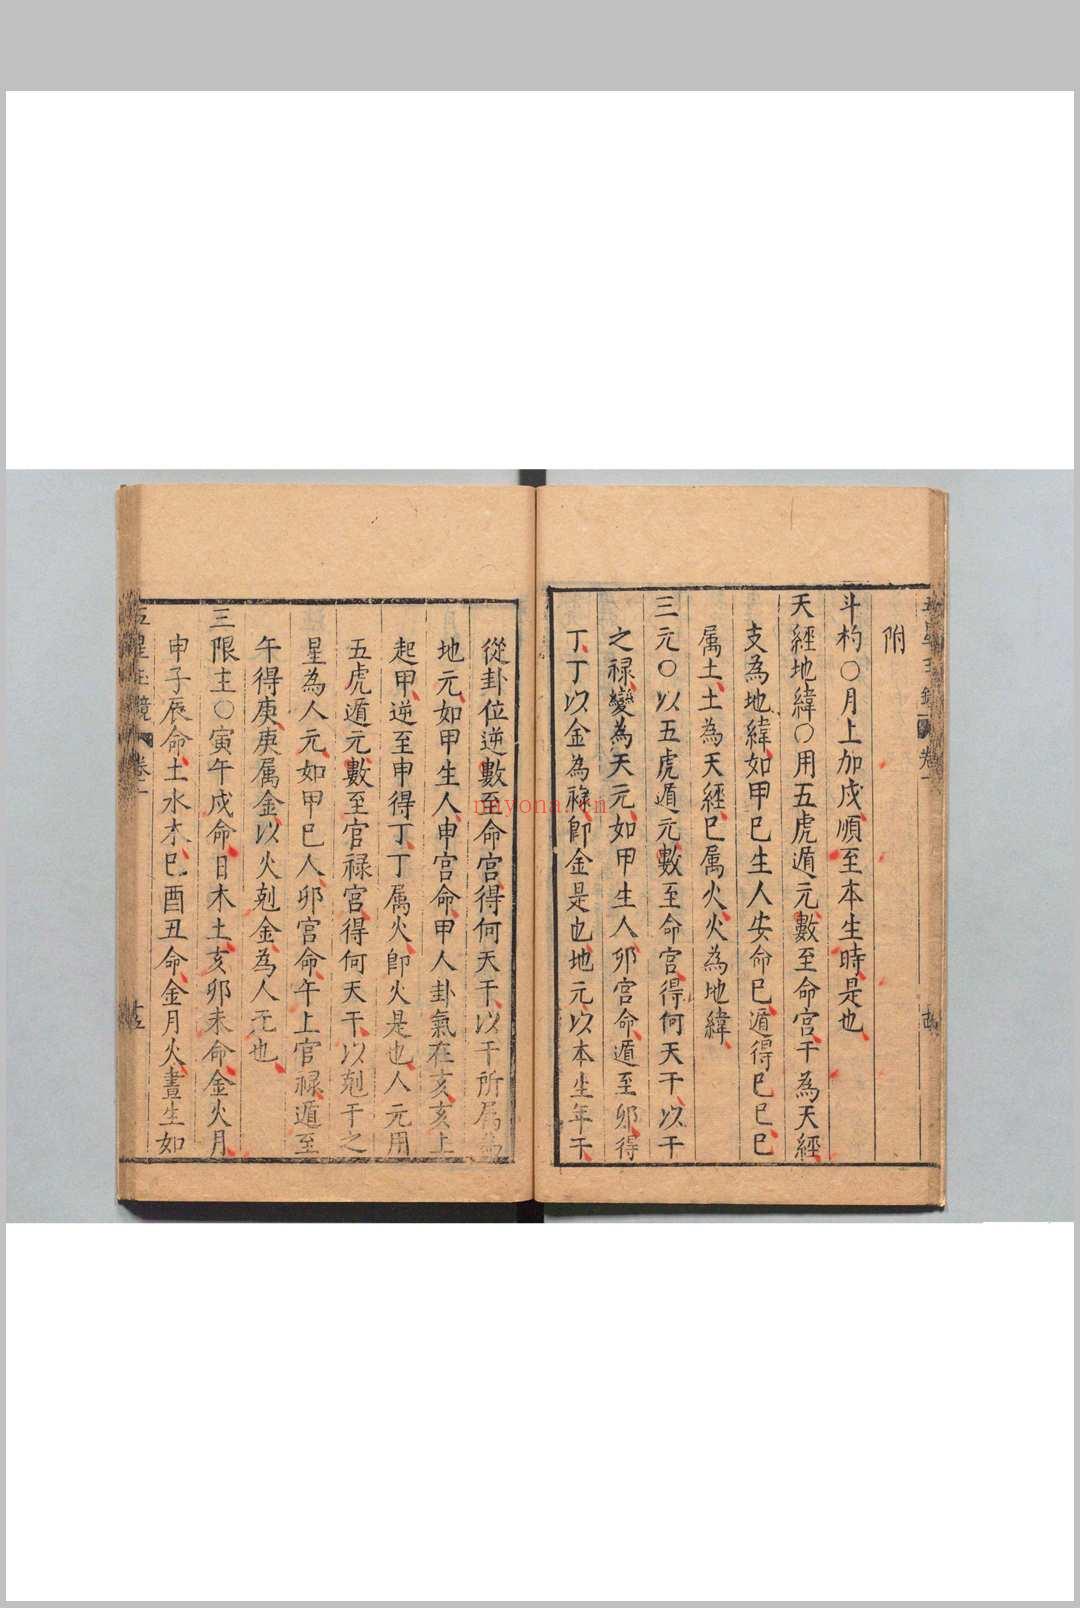 附
斗杓○月上加戍順至本生時是也
天經地緯○用五虎遁元數至命宮干為天經
支為地緯如甲巳生人安命巳遁得巳巳巳
属土土為天經巳属火火為地緯
三元○以五虎遁元數至命宮得何天干以干
之禄變為天元如甲生人卯宮命遁至卯得
丁丁以金為祿即金是也地元以本生年干
從卦位逆數至命宮得何天干以干所属為
地元如甲生人申宮命甲人卦氣在亥亥上
起甲逆至申得丁丁属火即火是也人元用
五虎遁元數至官禄宮得何天干以剋干之
星為人元如甲巳人卯宮命午上官禄遁至
午得庚庚属金以火剋金為人元也
三限主○寅午戍命日木土亥卯未命金火月
申子辰命土水木巳酉丑命金月火晝生如
鏡 卷二
nmyona.cn